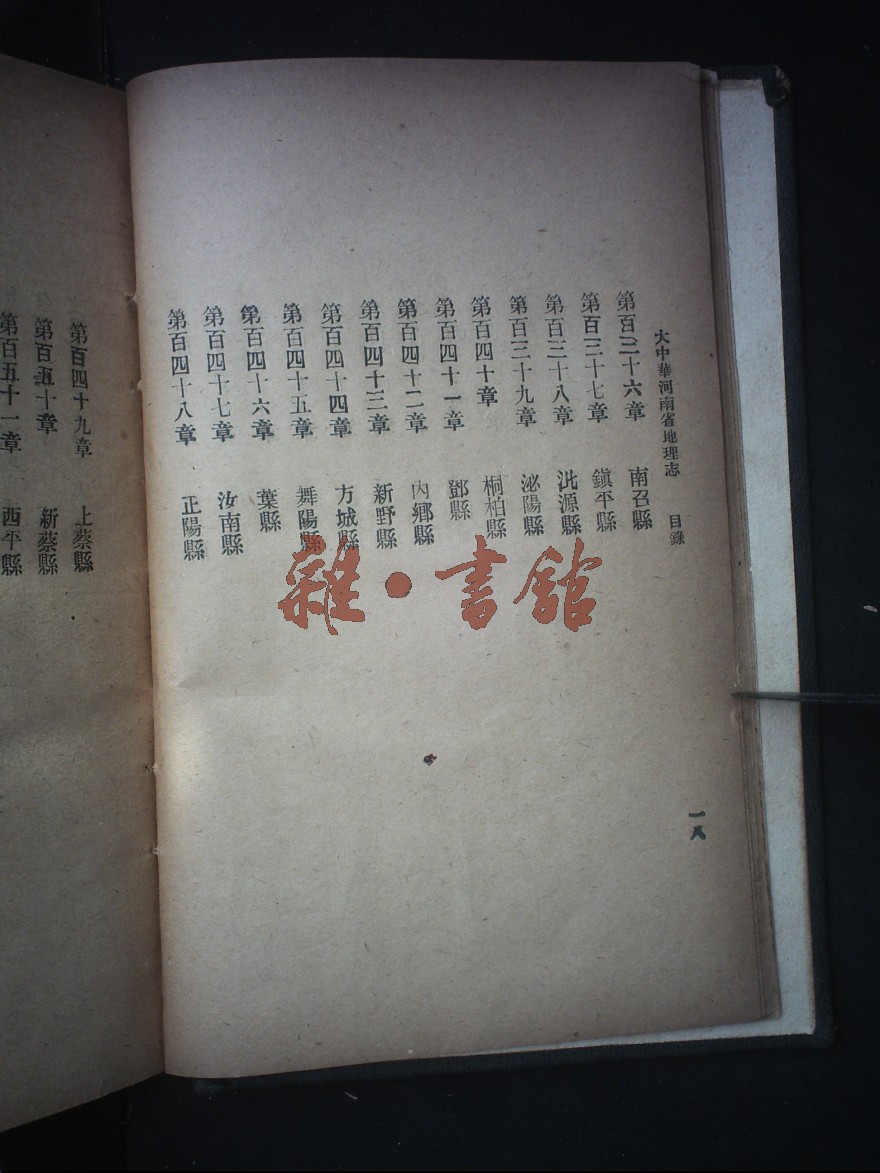 大中華河南省地理志 目錄
第百三十六章 南召縣
第百三十七章 鎮平縣
第百三十八章 沘源縣
第百三十九章 泌陽縣
第百四十章 桐柏縣
第百四十一章 鄧縣
第百四十二章 內鄉縣
第百四十三章 新野縣
第百四十四章 方城縣
第百四十五章 舞陽縣
第百四十六章 葉縣
第百四十七章 汝南縣
第百四十八章 正陽縣
一八
第百四十九章 上蔡縣
第百五十章 新蔡縣
第百五十一章 西平縣
雜·書館